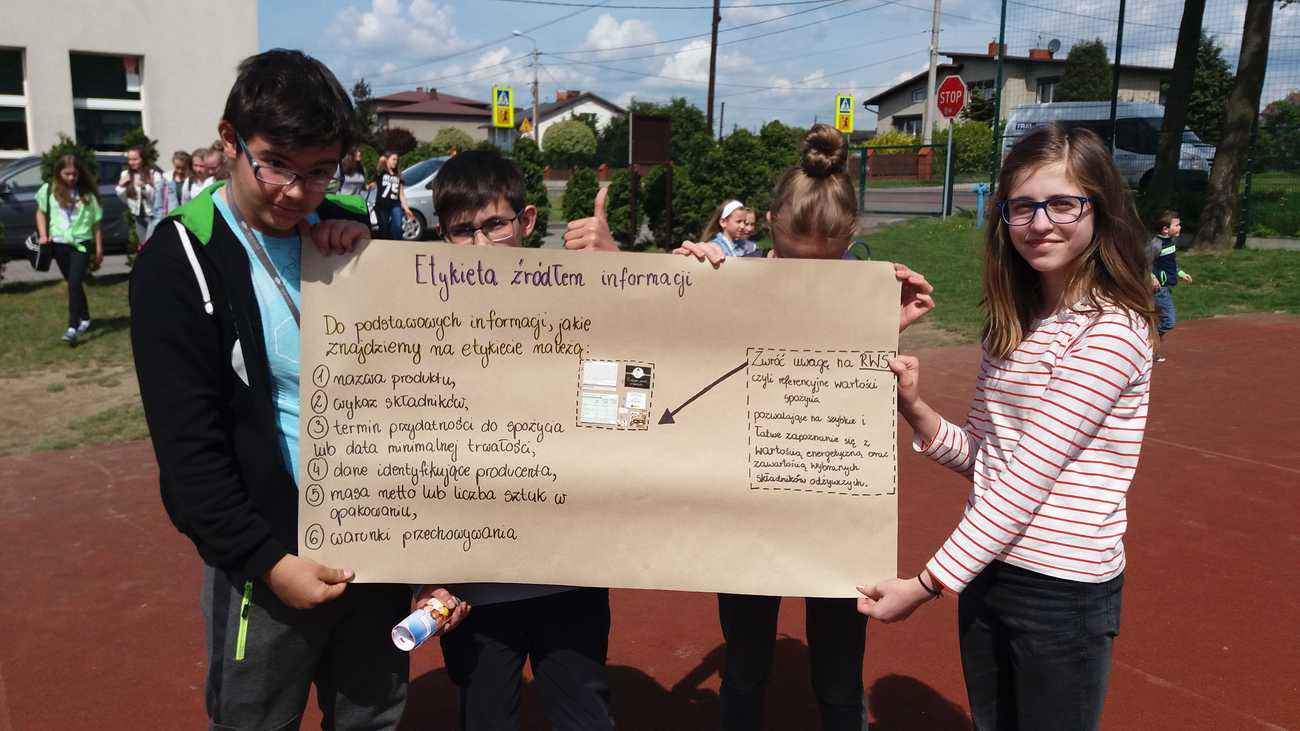 Etykieta źródłem informacji
Do podstawowych informacji, jakie
znajdziemy na etykiecie należą:
① nazwa produktu,
② wykaz składników,
③ termin przydatności do spożycia
lub data minimalnej trwałości,
④ dane identyfikujące producenta,
⑤ masa netto lub liczba sztuk w
opakowaniu,
⑥ warunki przechowywania
Zwróć uwagę na RWS
czyli referencyjne wartości
spożycia
pozwalające na szybkie i
łatwe zapoznanie się z
wartością energetyczną oraz
zawartością wybranych
składników odżywczych.
STOP